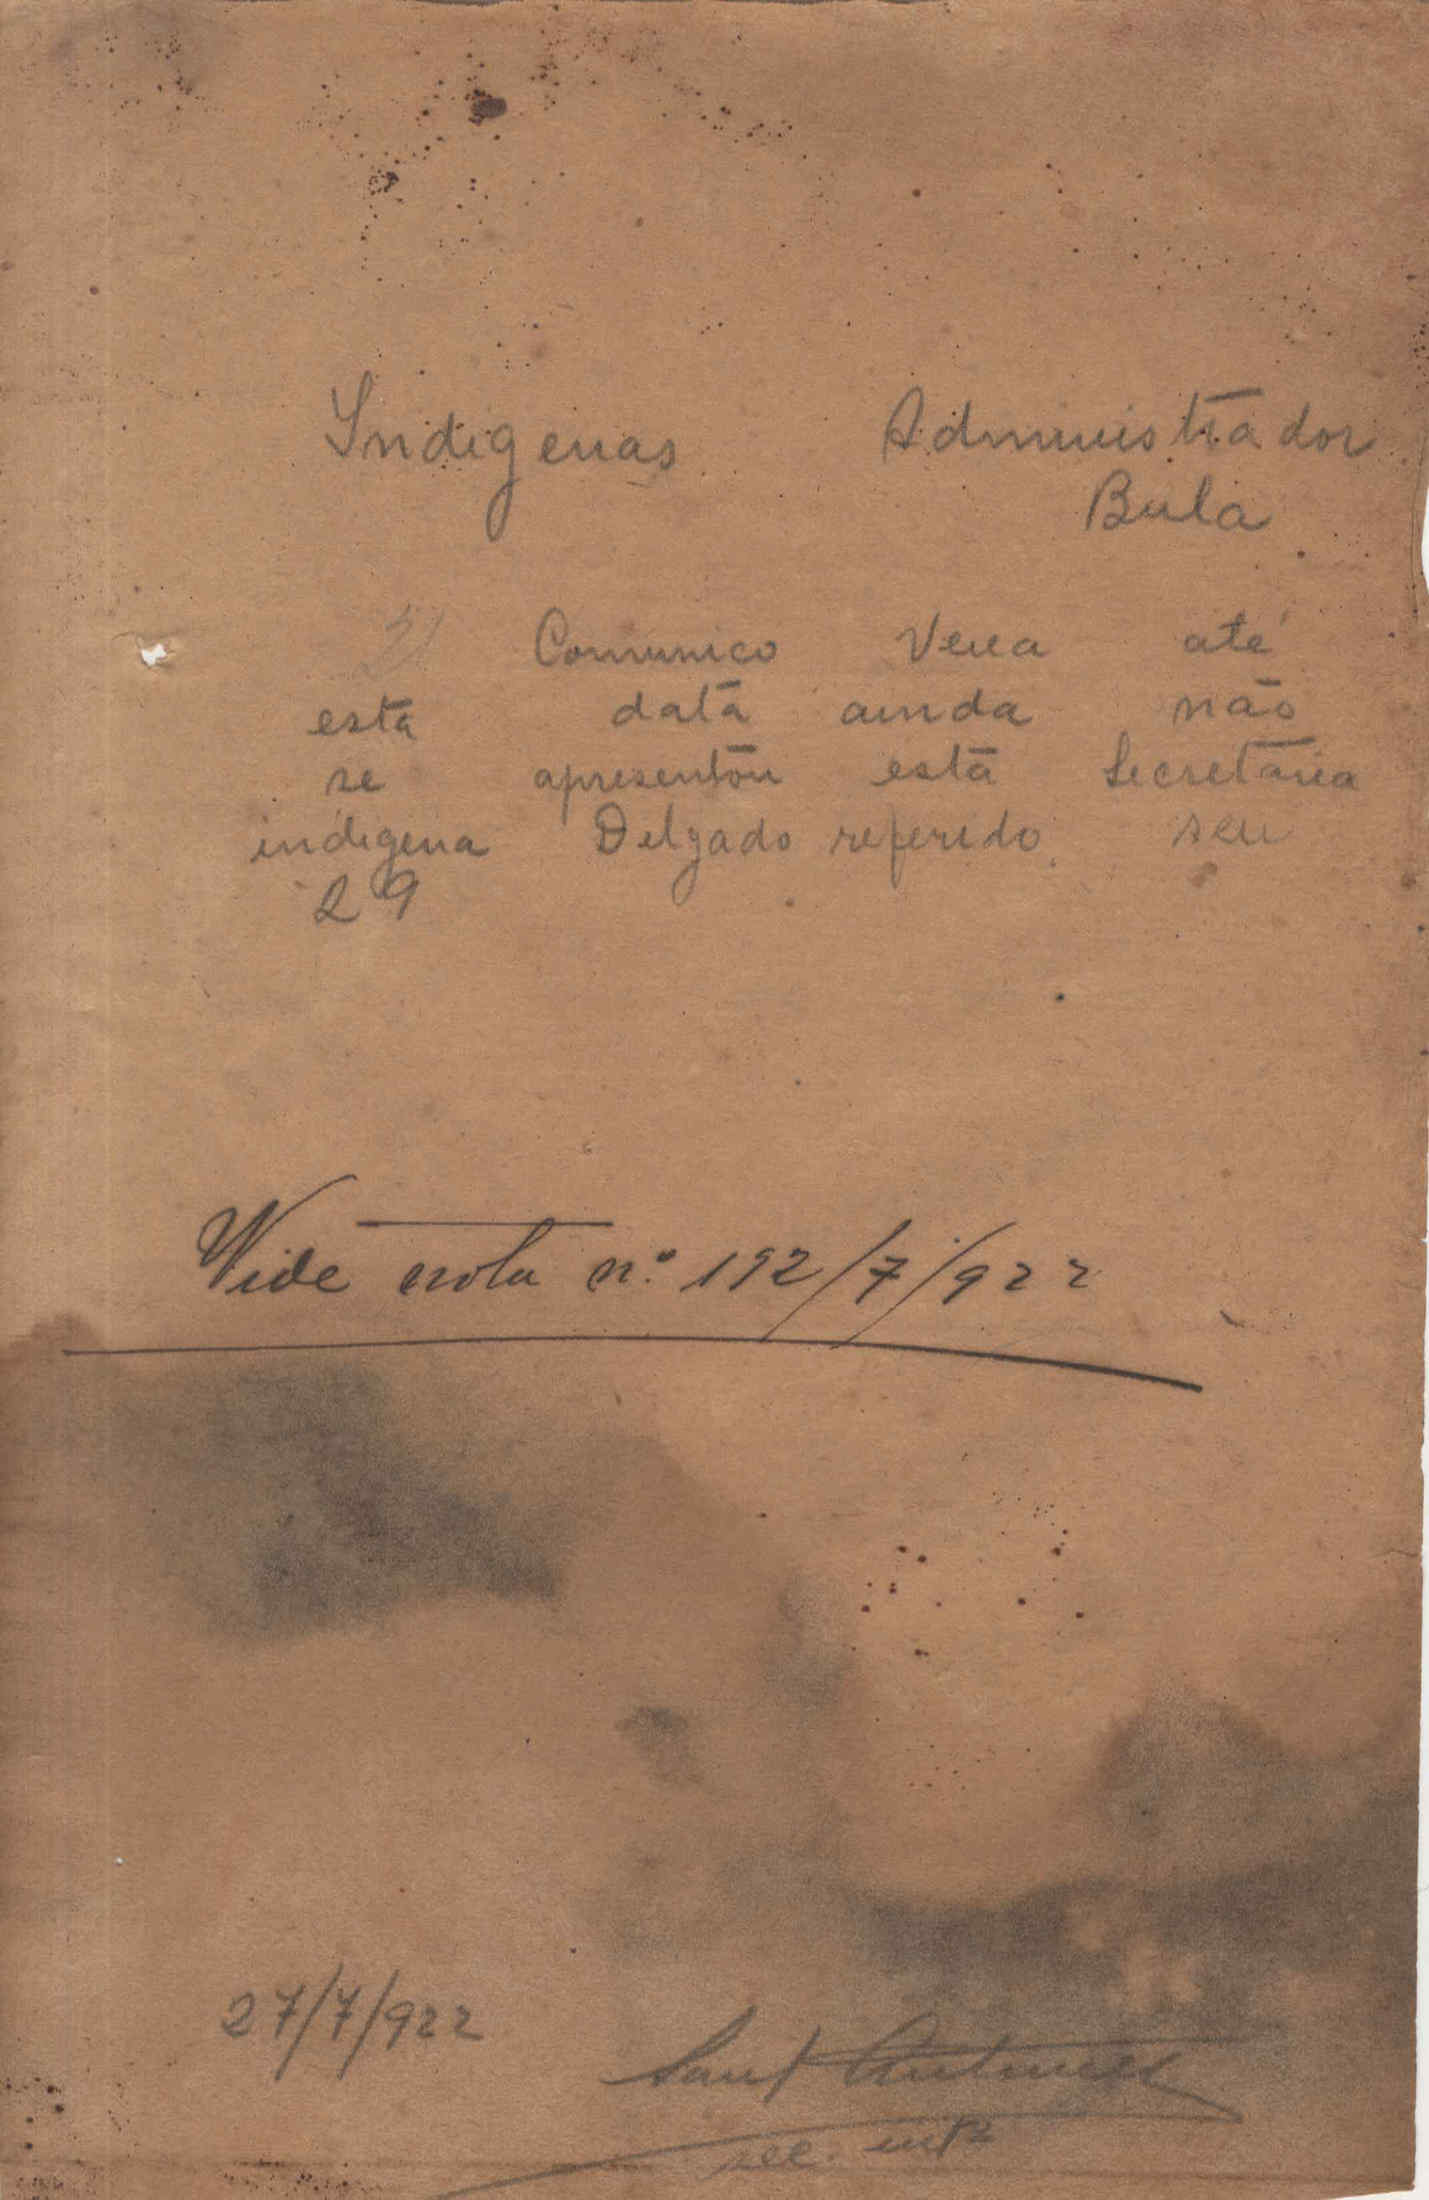 Indigenas Administrador
Bula
Comunico Vexa até
esta data ainda não
se apresentou esta Secretaria
indigena Delgado referido seu
29
Vide nota nº 192/7/922
27/7/922
Antunes
sec. intº